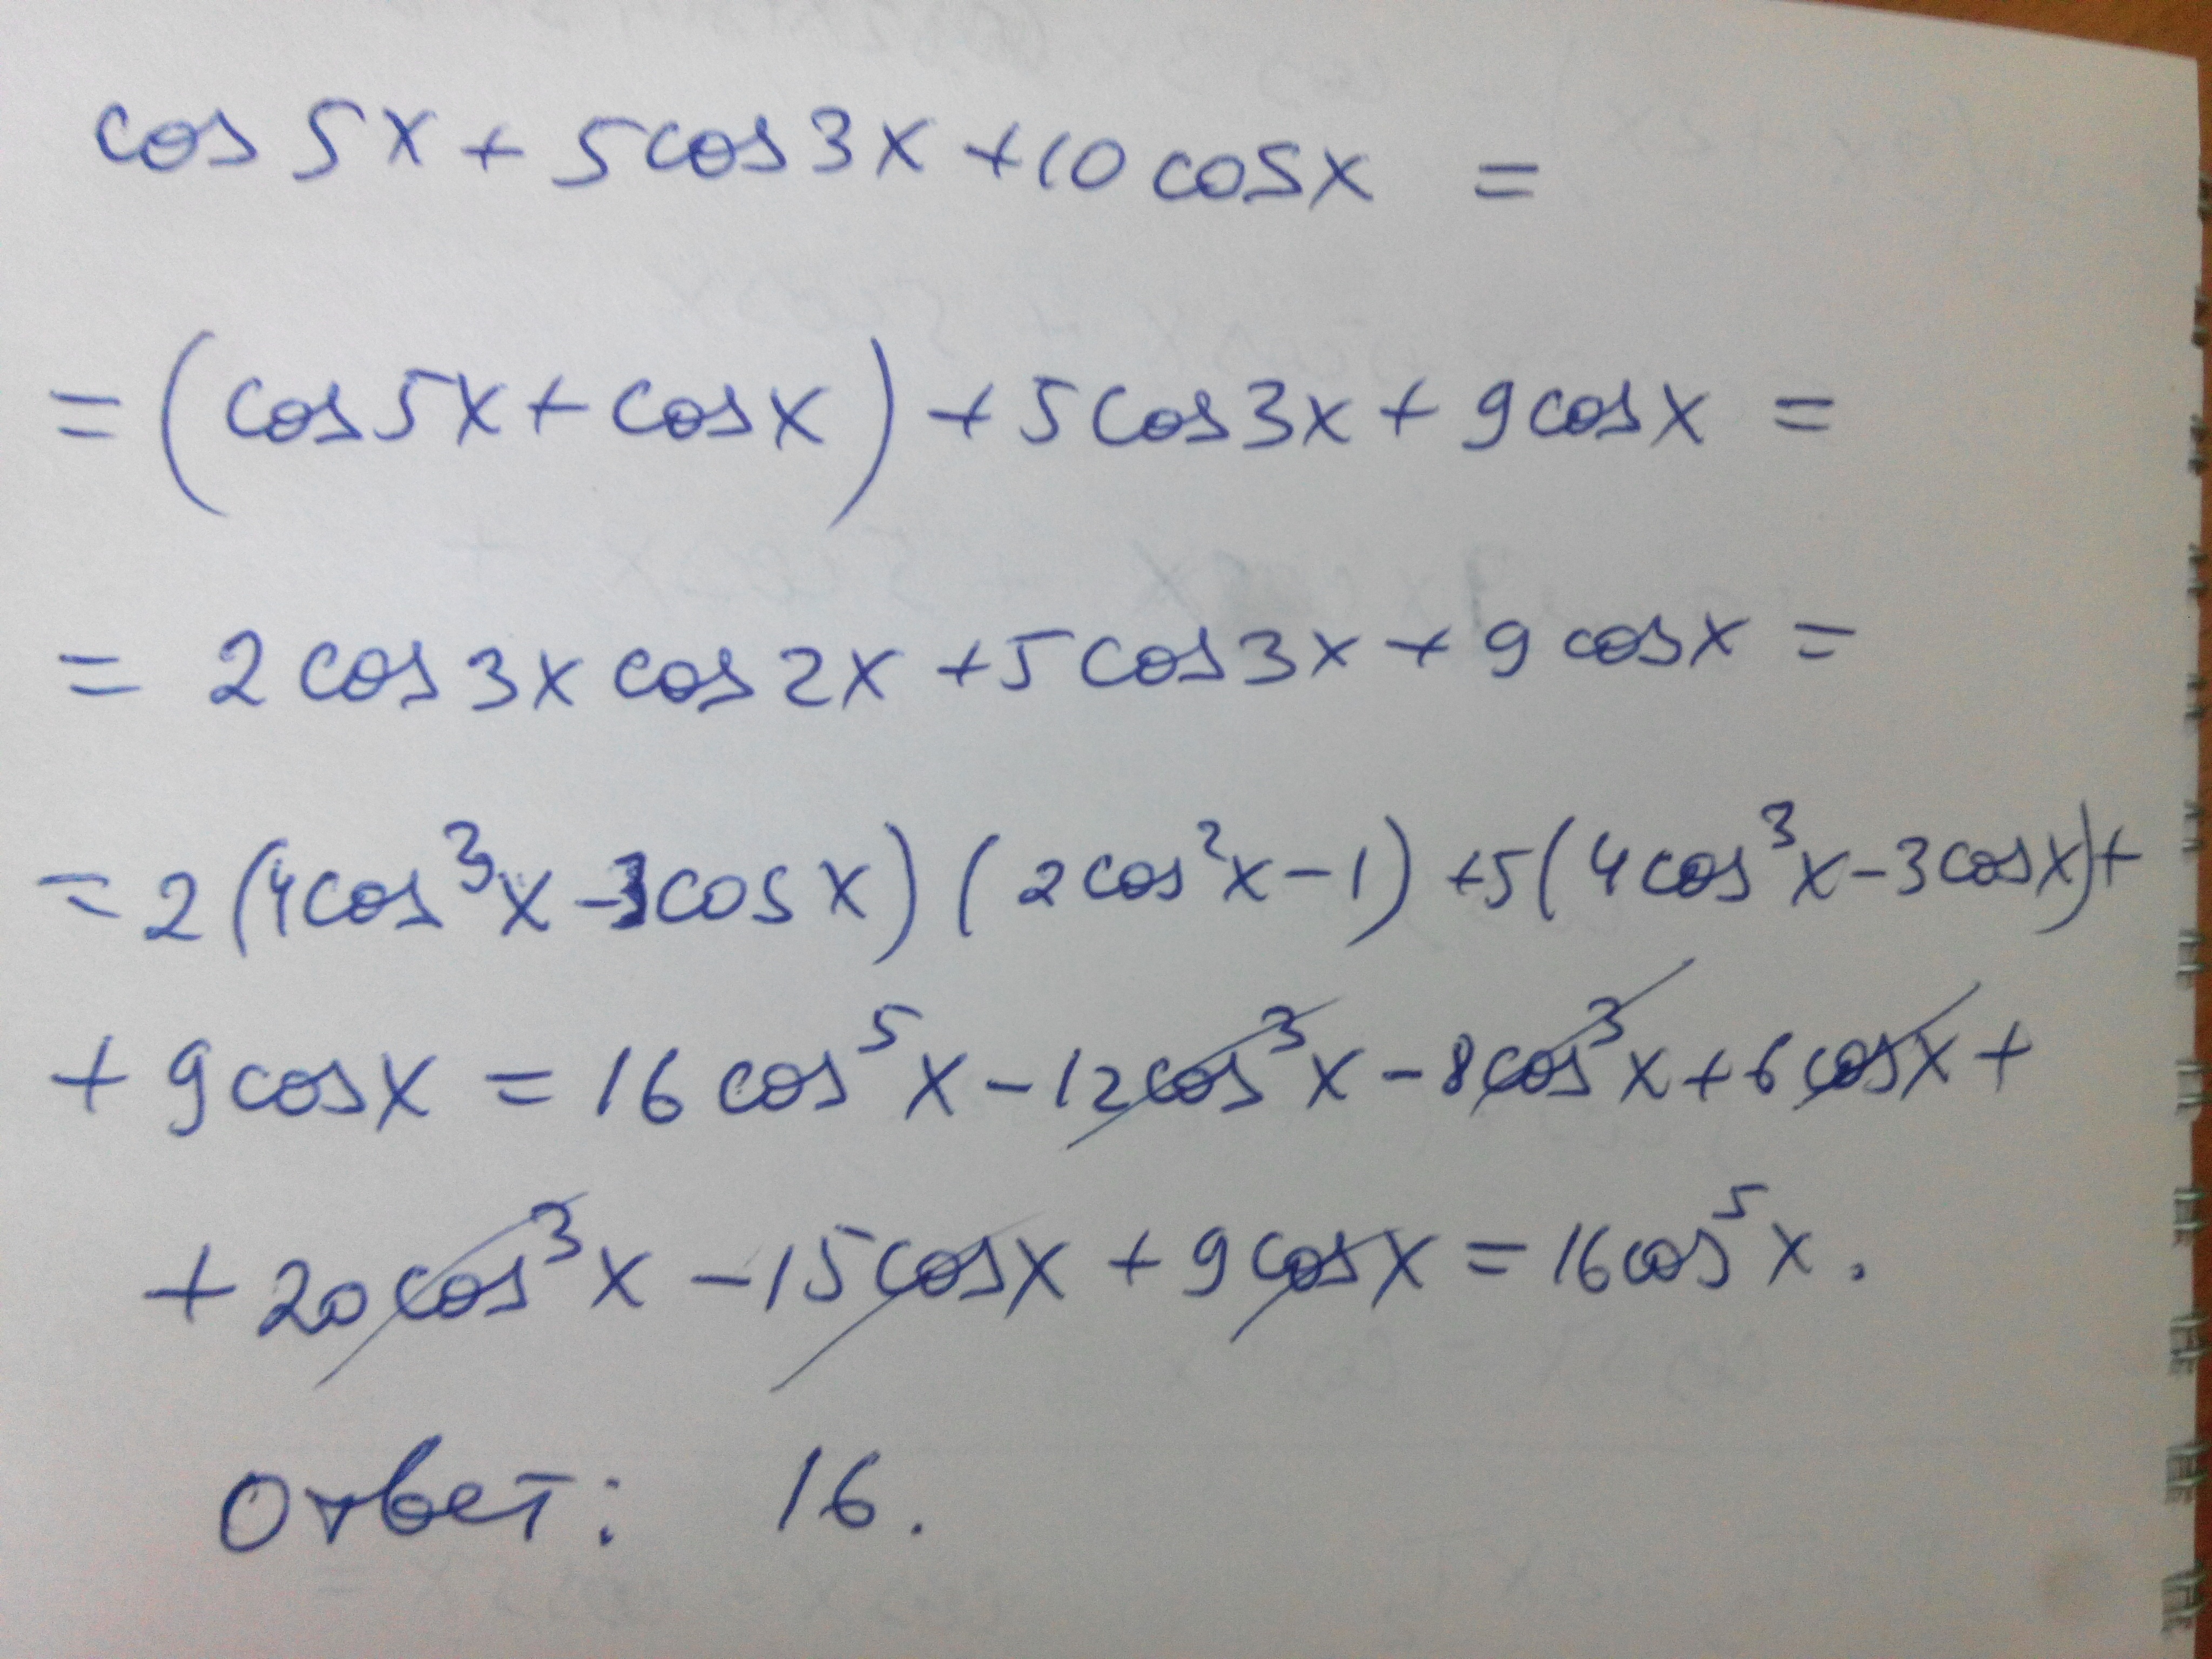 cos 5x + 5cos3x + 10 cosx =
= (cos5x + cosx) + 5cos3x + 9cosx =
= 2 cos 3x cos 2x + 5 cos3x + 9 cosx =
= 2 (4cos³x - 3cos x) (2cos²x - 1) + 5(4cos³x - 3cosx) +
+ 9cosx = 16 cos⁵x - 12cos³x - 8cos³x + 6cosx +
+ 20cos³x - 15cosx + 9cosx = 16cos⁵x.
Ответ: 16.